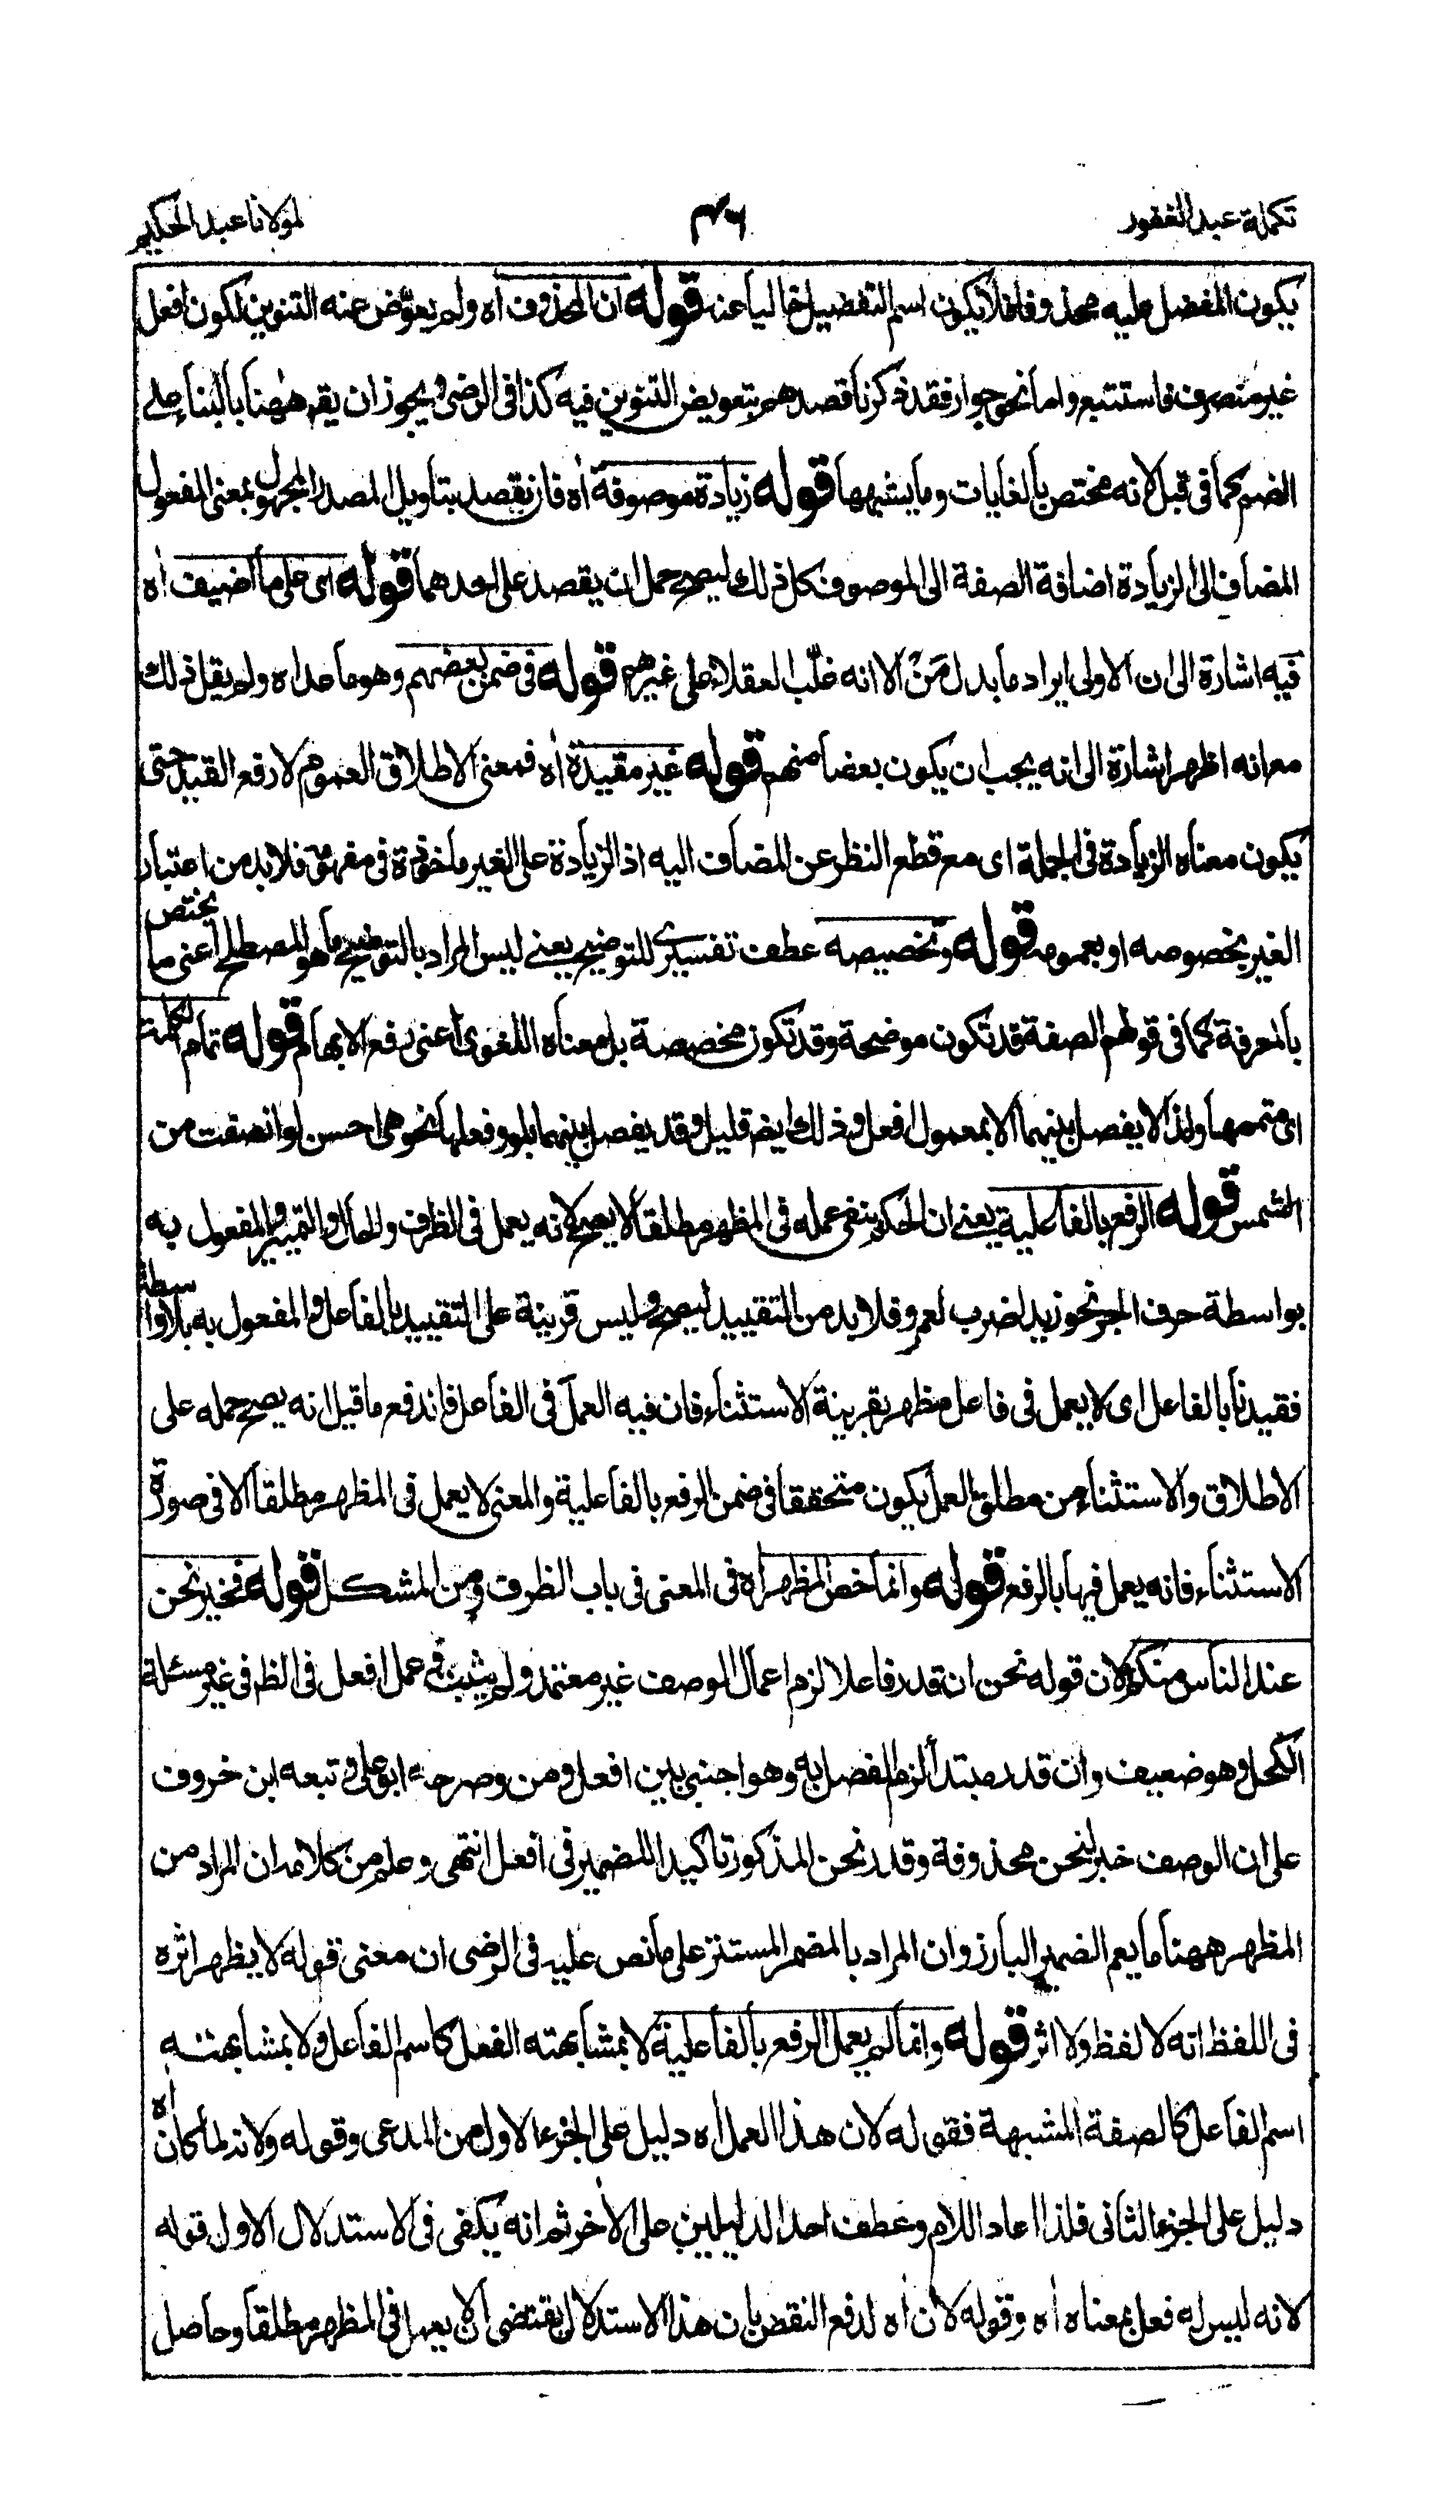 تكملة عبد الغفور
٣٤٦
لمولانا عبد الحكيم
يكون المفضل عليه محذوفا فلا يكون اسم التفضيل خاليا عنه قوله ان المحذوف اه ولم يعوض عنه التنوين لكون افعل
غير منصرف فاستتبع واما نحو جوار فقد ذكرنا قصدهم بتعويض التنوين فيه كذا فى الرضى ويجوز ان يقم ههنا بالبناء على
الضم كما فى قبل لانه مختص بالغايات وما يشبهها قوله زيادة موصوفة اه فان يقصد بتاويل المصدر المجهول بمعنى المفعول
المضاف الى الزيادة اضافة الصفة الى الموصوف كل ذلك ليصح حمل ان يقصد على احدهما قوله اى على ما اضيف اه
فيه اشارة الى ان الاولى ايراد ما بدل مَنْ الا انه غلّب العقلاء على غيرهم قوله فى ضمن بعضهم وهو ما عداه ولم يقل ذلك
مع انه اظهر اشارة الى انه يجب ان يكون بعضا منهم قوله غير مقيدة اه فمعنى الاطلاق العموم لا رفع القيد حتى
يكون معناه الزيادة فى الجملة اى مع قطع النظر عن المضاف اليه اذ الزيادة على الغير ماخوذة فى مفهومه فلا بد من اعتبار
الغير بخصوصه او بعمومه قوله وتخصيصه عطف تفسيرى للتوضيح يعنى ليس المراد بالتوضيح ما هو المصطلح اعنى ما يختص
بالمعرفة كما فى قولهم الصفة قد تكون موضحة وقد تكون مخصصة بل معناه اللغوى اعنى رفع الابهام قوله تمام الكلمة
اى متممها ولذا لا يفصل بينهما الا بمعمول افعل وذلك ايضم قليل وقد يفصل بينهما بلو وفعلها نحو هى احسن لو انصفت من
الشمس قوله الرفع بالفاعلية يعنى ان الحكم بنفى عمله فى المظهر مطلقا لا يصح لانه يعمل فى الظرف والحال والتمييز والمفعول به
بواسطة حرف الجر نحو زيد لضرب لعمرو فلا بد من التقييد ليصح وليس قرينة على التقييد بالفاعل والمفعول به بلا واسطة
فقيدنا بالفاعل اى لا يعمل فى فاعل مظهر بقرينة الاستثناء فان فيه العمل فى الفاعل فاندفع ما قيل انه يصح حمله على
الاطلاق والاستثناء من مطلق العمل يكون متحققا فى ضمن الرفع بالفاعلية والمعنى لا يعمل فى المظهر مطلقا الا فى صورة
الاستثناء فانه يعمل فيها بالرفع قوله وانما خص المظهر اه فى المعنى فى باب الظروف ومن المشكل قوله فخير نحن
عند الناس منكم لان قوله نحن ان قدر فاعلا لزم اعمال الوصف غير معتمد ولم يثبت عمل افعل فى الظم فى غير مسئلة
الكحل وهو ضعيف وان قدر مبتدأ لزم الفصل به وهو اجنبى بين افعل ومن وصرح ابو على وتبعه ابن خروف
على ان الوصف خبر لنحن محذوفة وقدر نحن المذكور تاكيدا للضمير فى افعل انتهى وعلم من كلامه ان المراد من
المظهر ههنا ما يعم الضمير البارز وان المراد بالمضمر المستتر على ما نص عليه فى الرضى ان معنى قوله لا يظهر اثره
فى اللفظ انه لا لفظ ولا اثر قوله وانما لم يعمل الرفع بالفاعلية لا بمشابهته الفعل كاسم الفاعل ولا بمشابهته
اسم الفاعل كالصفة المشبهة فقوله لان هذا العمل اه دليل على الجزء الاول من المدعى وقوله ولانه لما كان اه
دليل على الجزء الثانى فلذا اعاد اللام وعطف احد الدليلين على الاخر ثم انه يكفى فى الاستدلال الاول قوله
لانه ليس له فعل بمعناه اه وقوله لان اه لدفع النقض بان هذا الاستدلال يقتضى ان لا يعمل فى المظهر مطلقا وحاصل